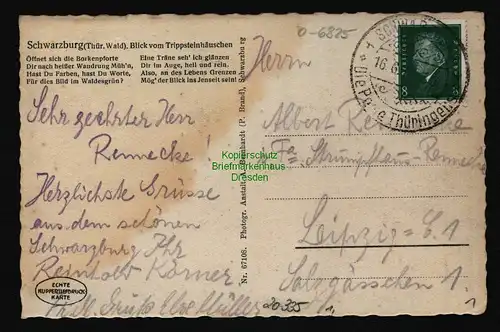 Schwarzburg (Thür. Wald), Blick vom Trippsteinhäuschen
Öffnet sich die Borkenpforte
Dir nach heißer Wandrung Müh'n,
Hast Du Farben, hast Du Worte,
Für dies Bild im Waldesgrün?
Eine Träne seh' ich glänzen
Dir im Auge, hell und rein.
Also, an des Lebens Grenzen
Mög' der Blick ins Jenseit sein!
Sehr geehrter Herr
Rennecke!
Herzlichste Grüsse
aus dem schönen
Schwarzburg Thr
Reinhold Körner
ECHTE
KUPFERTIEFDRUCK
KARTE
Nr. 67108. Photogr. Anstalt A. Bernhardt (P. Brand), Schwarzburg
Kopierschutz
Briefmarkenhaus
Dresden
0-6825
16.6
Die Perle Thüringens
8 8
Herrn
Albert
Fa Strumpfhaus-Rennecke
Leipzig-C.1
Salzgässchen 1
20335